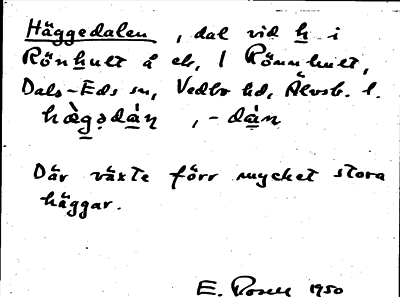 Häggedalen, dal vid h i
Rönhult å ek, 1 Rönnhult,
Dals-Eds sn, Vedbo hd, Älvsb. l.
hàg̱ədàn, -dàn
Där växte förr mycket stora
häggar.
E. Rosell 1950